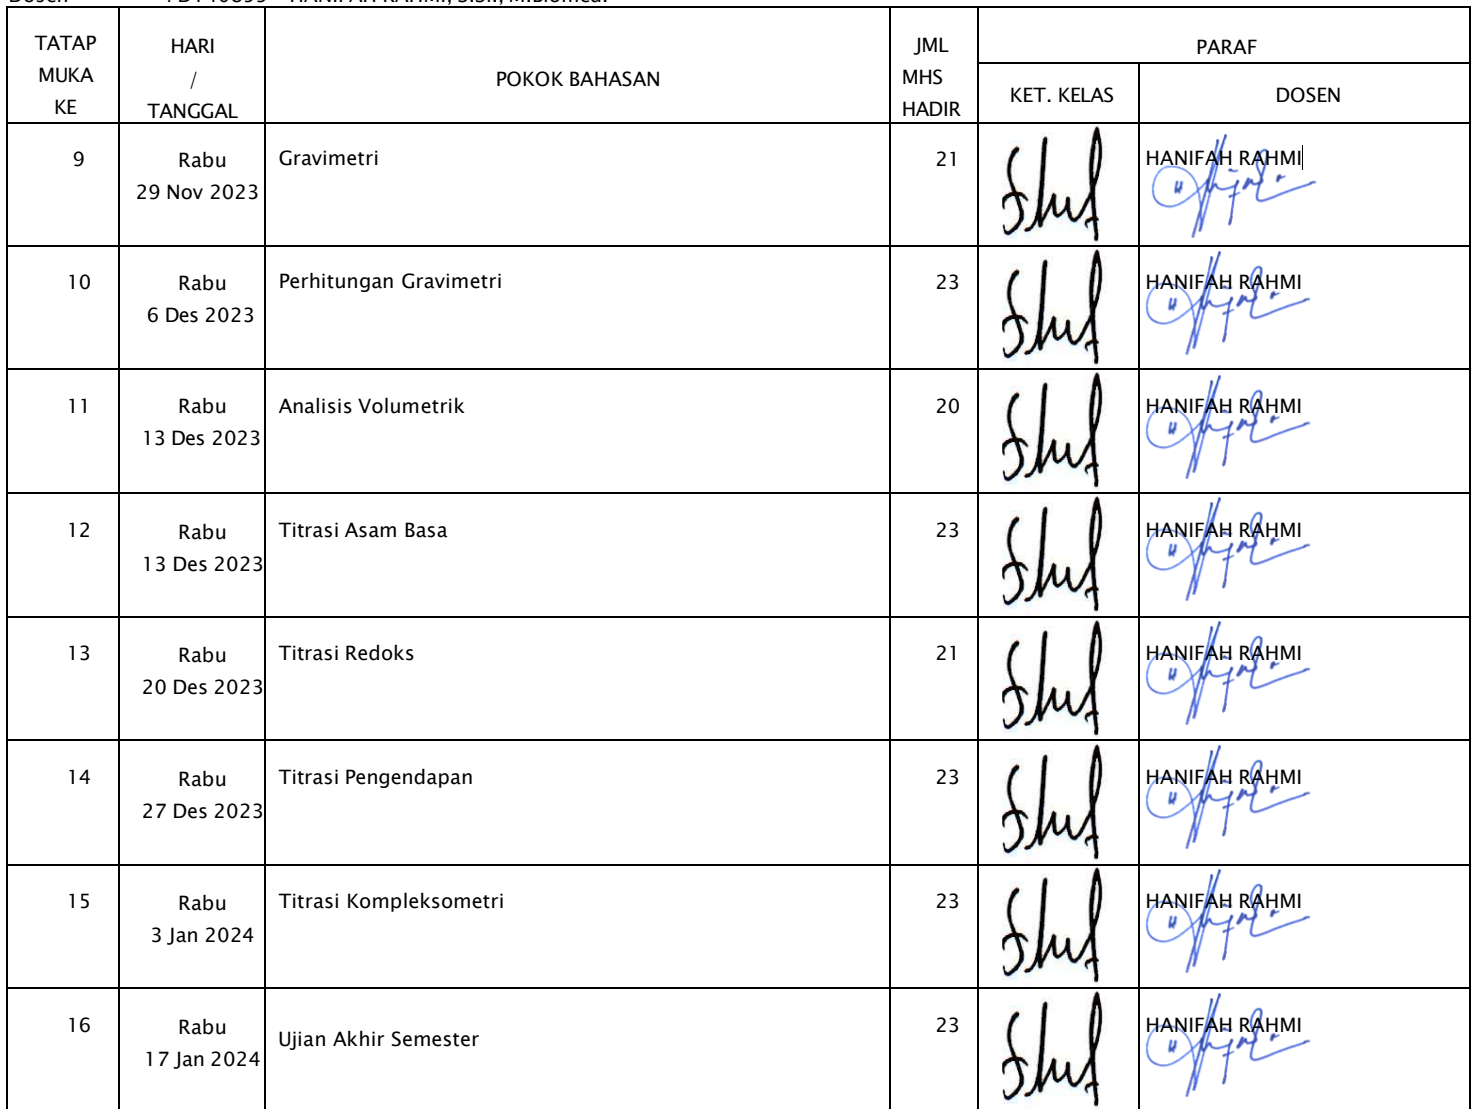 HANIFAH RAHMI, S.Si., M.Biomed.
TATAP MUKA KE
HARI / TANGGAL
POKOK BAHASAN
JML MHS HADIR
PARAF
KET. KELAS
DOSEN
9
Rabu
29 Nov 2023
Gravimetri
21
HANIFAH RAHMI
10
Rabu
6 Des 2023
Perhitungan Gravimetri
23
HANIFAH RAHMI
11
Rabu
13 Des 2023
Analisis Volumetrik
20
HANIFAH RAHMI
12
Rabu
13 Des 2023
Titrasi Asam Basa
23
HANIFAH RAHMI
13
Rabu
20 Des 2023
Titrasi Redoks
21
HANIFAH RAHMI
14
Rabu
27 Des 2023
Titrasi Pengendapan
23
HANIFAH RAHMI
15
Rabu
3 Jan 2024
Titrasi Kompleksometri
23
HANIFAH RAHMI
16
Rabu
17 Jan 2024
Ujian Akhir Semester
23
HANIFAH RAHMI